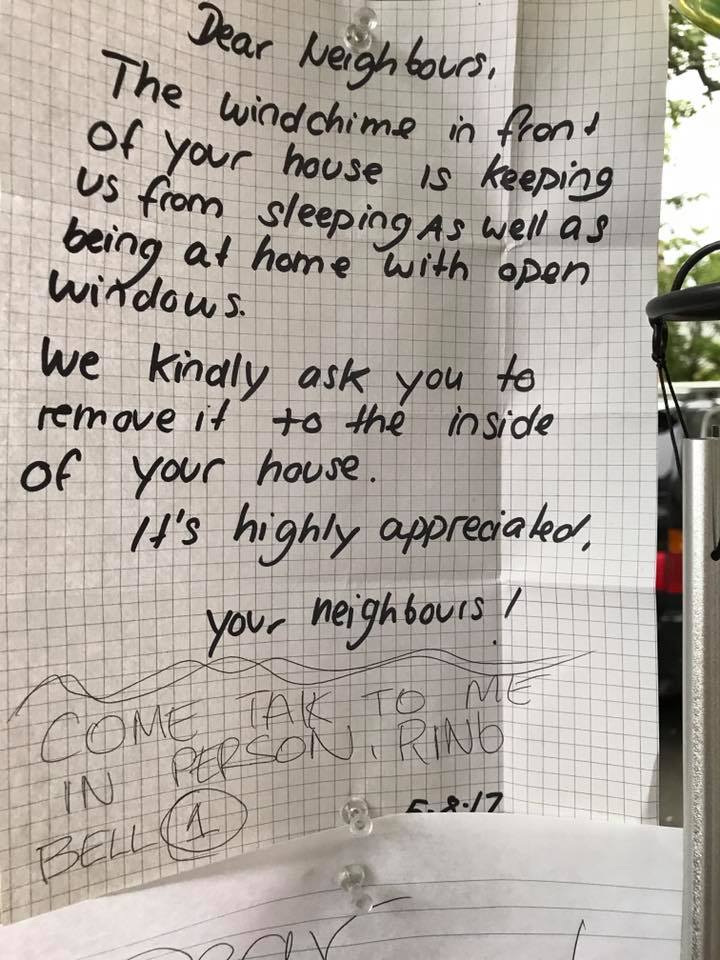 Dear Neighbours,
The windchime in front
of your house is keeping
us from sleeping As well as
being at home with open
windows.
We kindly ask you to
remove it to the inside
of your house.
It's highly appreciated,
your neighbours!
COME TALK TO ME
IN PERSON. RING
BELL 1
5.8.17